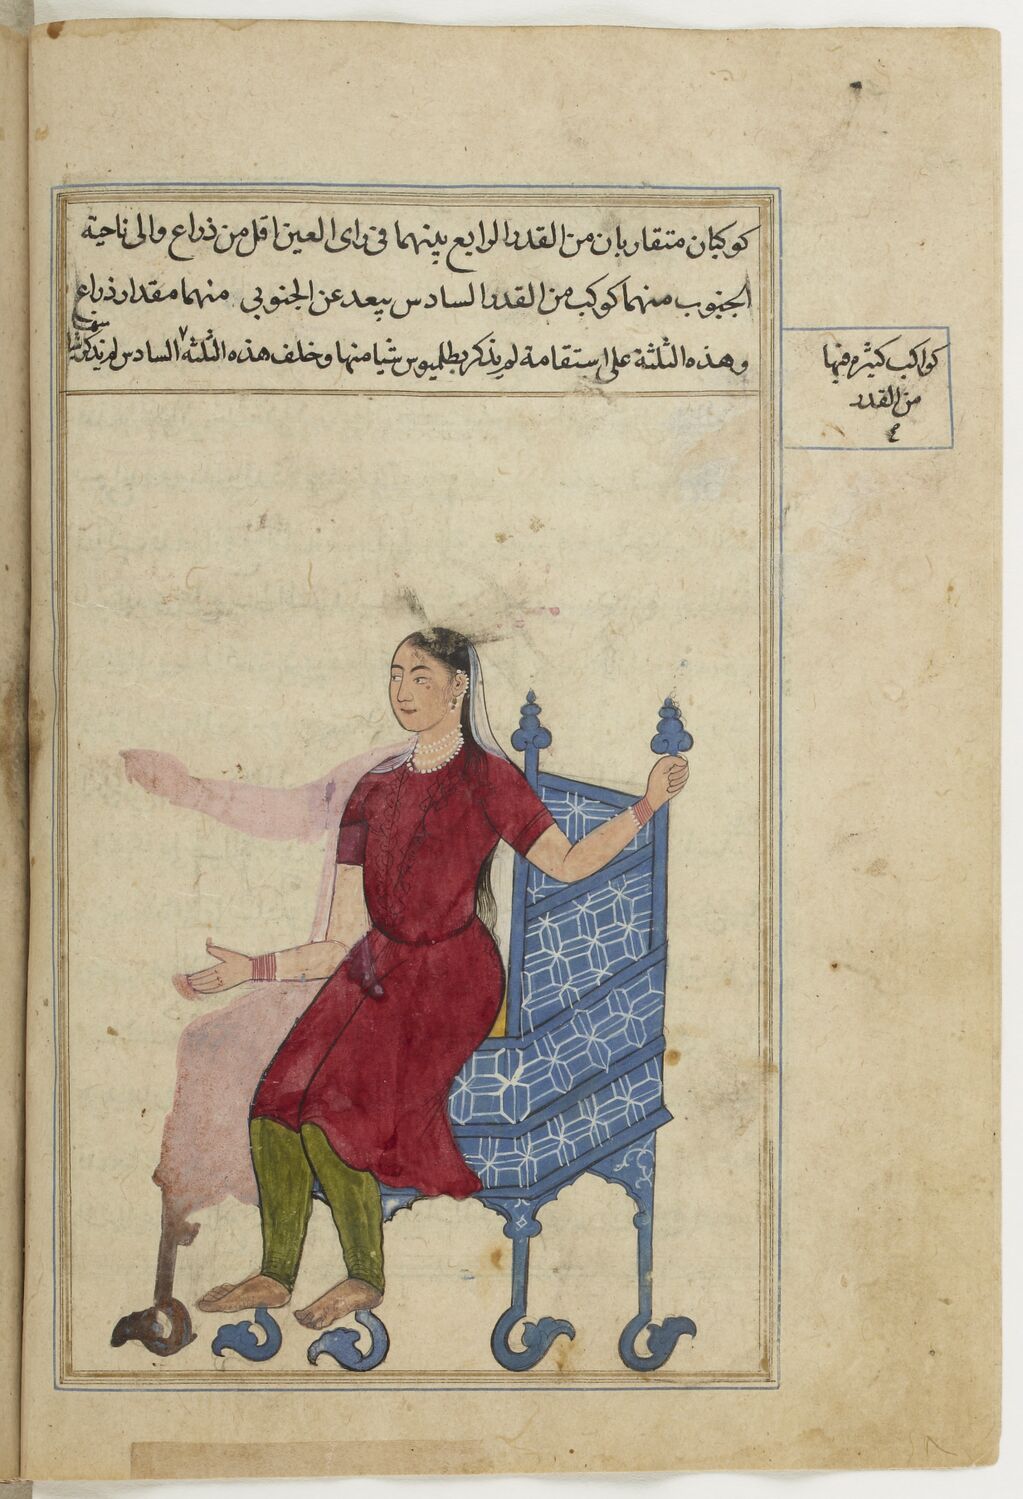 كوكبان متقاربان من القدر الرابع بينهما فى راى العين اقل من ذراع والى ناحية
الجنوب منهما كوكب من القدر السادس يبعد عن الجنوبي منهما مقدار ذراع
وهذه الثلثة على استقامة لم يذكر بطلميوس شيا منها وخلف هذه الثلثة السادس لم يذكر
كواكب كثيرة منها
من القدر